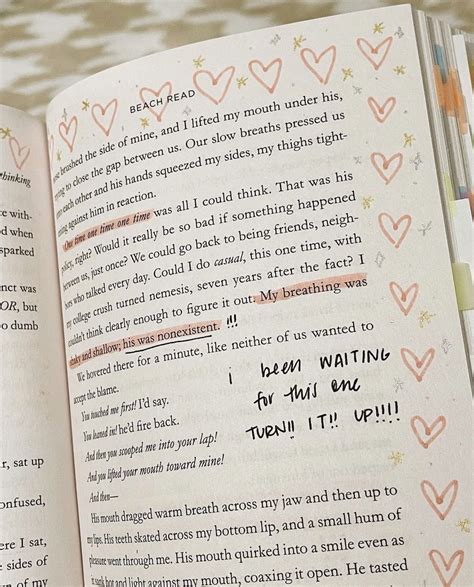 BEACH READ
brushed the side of mine, and I lifted my mouth under his,
to close the gap between us. Our slow breaths pressed us
each other and his hands squeezed my sides, my thighs tight-
against him in reaction.
One time one time one time was all I could think. That was his
policy, right? Would it really be so bad if something happened
between us, just once? We could go back to being friends, neigh-
bors who talked every day. Could I do casual, this one time, with
my college crush turned nemesis, seven years after the fact? I
couldn't think clearly enough to figure it out. My breathing was
shaky and shallow; his was nonexistent. !!!
We hovered there for a minute, like neither of us wanted to
accept the blame.
You touched me first! I'd say.
You leaned in! he'd fire back.
And then you scooped me into your lap!
And you lifted your mouth toward mine!
And then—
i been WAITING
for this one
TURN!! IT!! UP!!!!
His mouth dragged warm breath across my jaw and then up to
my lips. His teeth skated across my bottom lip, and a small hum of
pleasure went through me. His mouth quirked into a smile even as
it sank hot and light against my mouth, coaxing it open. He tasted
thinking
e with-
d when
sparked
nct was
OR, but
o dumb
r, sat up
onfused,
ere I sat,
sides of
n of my